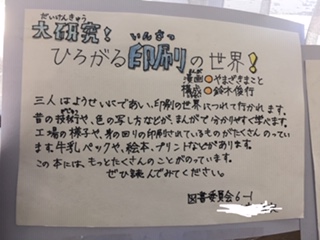 だいけんきゅう
大研究!
いんさつ
ひろがる印刷の世界!
まんが
漫画●やまざきまこと
構成●鈴木俊行
三人はようせいくであい、印刷の世界につれて行かれます。
昔の技術や、色の写し方などが、まんがで分かりやすく学べます。
工場の様子や、身の回りの印刷されているものがたくさんのってい
ます。牛乳パックや、絵本、プリントなどがあります。
この本には、もっとたくさんのことがのっています。
ぜひ読んでみてください。
図書委員会6-1